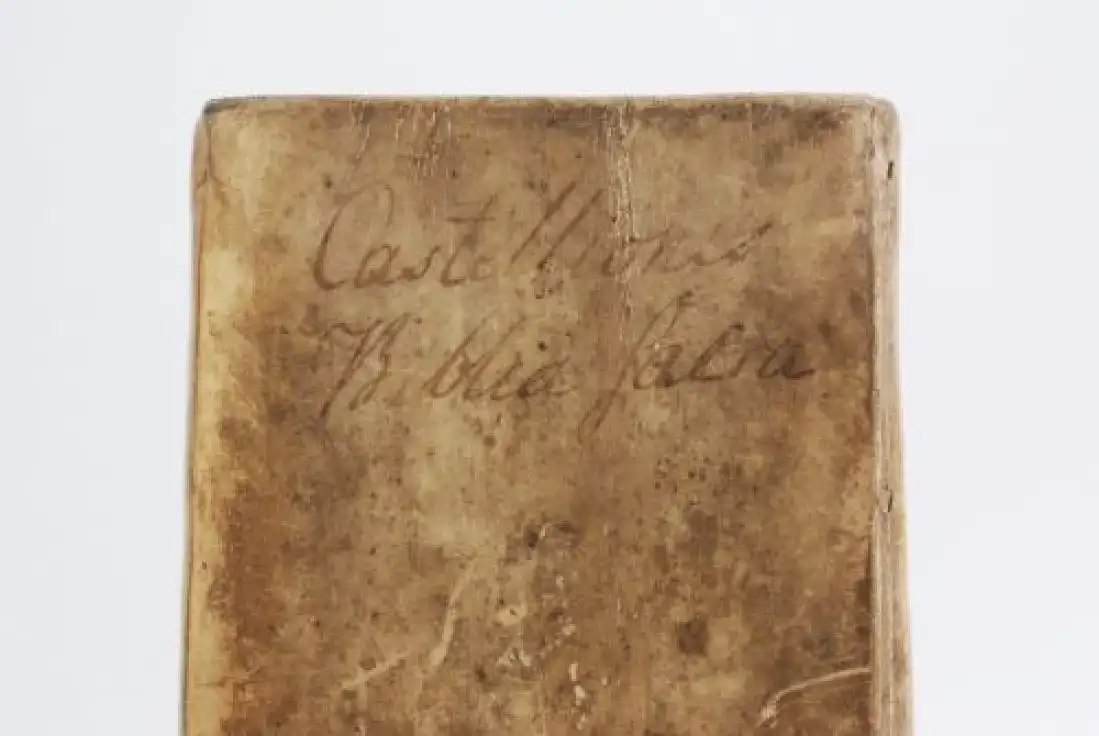 Castellionis
Biblia sacra